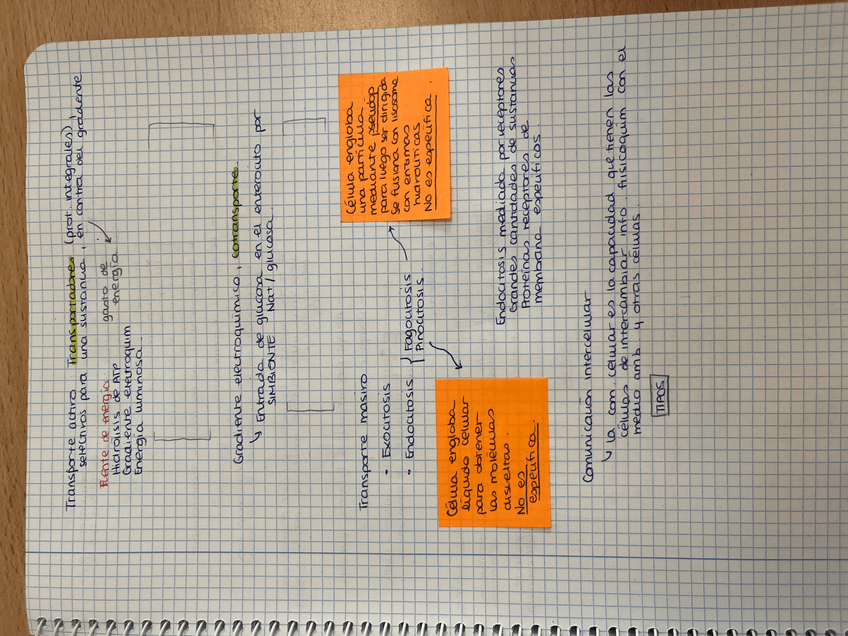 Transporte activo: Transportadores (prot. integrales),
selectivos para una sustancia, en contra del gradiente
gasto de
energía
Fuente de energía:
Hidrólisis de ATP
Gradiente eletroquim
Energía luminosa.
Gradiente electroquímico, cotransporte.
↳ Entrada de glucosa en el enterocito por
SIMBIONTE Na+/glucosa
Transporte masivo
• Exocitosis
• Endocitosis { Fagocitosis
Pinocitosis.
Célula engloba
una partícula
mediante pseudop
para luego ser dirigida
Se fusiona con lisosome
con enzimas
hidrolíticas
No es específica.
Célula engloba
líquido celular
para obtener
las moléculas
disueltas.
No es
específica
Endocitosis mediada por receptores
Grandes cantidades de sustancias
Proteínas receptores de
membrana específicos
Comunicación intercelular
↳ la com. celular es la capacidad que tienen las
células de intercambiar info fisicoquim con el
medio amb y otras células.
TIPOS